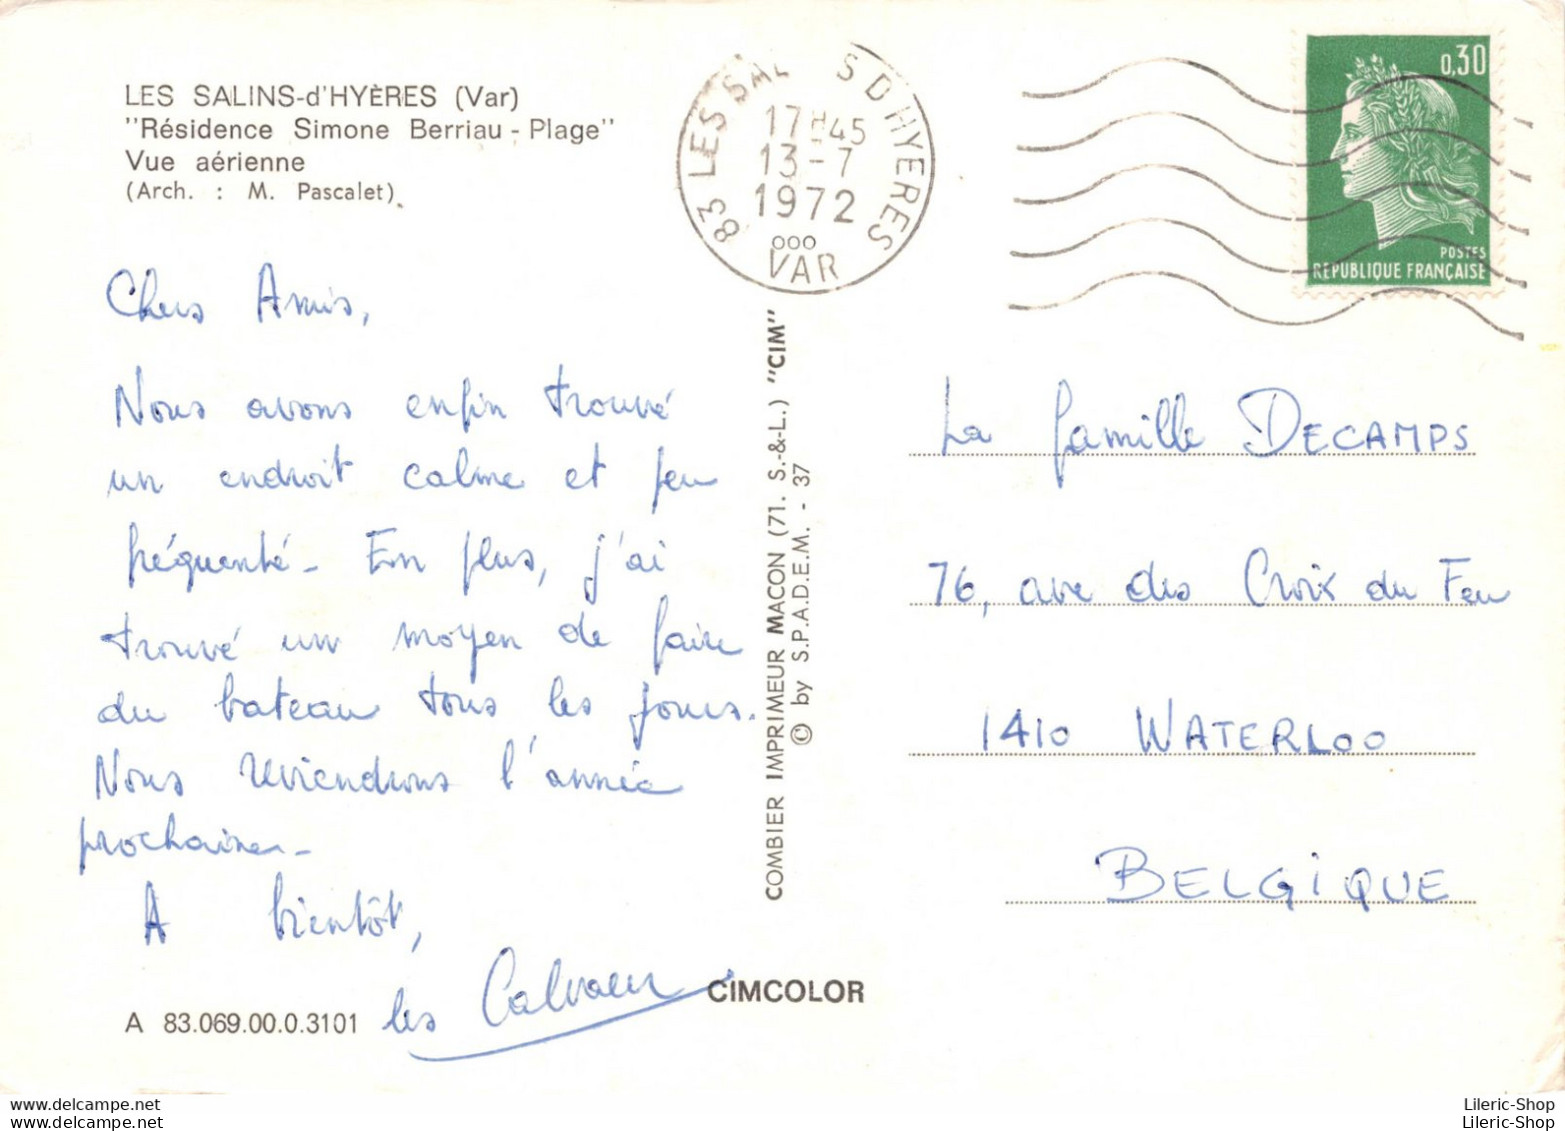 LES SALINS-d'HYÈRES (Var)
"Résidence Simone Berriau - Plage"
Vue aérienne
(Arch. : M. Pascalet)
83 LES SAL S D HYERES
17H45
13-7
1972
ooo
VAR
0,30
POSTES
REPUBLIQUE FRANÇAISE
Chers Amis,
Nous avons enfin trouvé
un endroit calme et peu
fréquenté - En plus, j'ai
trouvé un moyen de faire
du bateau tous les jours.
Nous reviendrons l'année
prochaine -
A bientôt,
les
COMBIER IMPRIMEUR MACON (71. S.-&-L.) "CIM"
© by S.P.A.D.E.M. - 37
La famille DECAMPS
76, ave des Croix du Feu
1410 WATERLOO
BELGIQUE
CIMCOLOR
A 83.069.00.0.3101
delcampe.net
delcampe.net
Lileric-Shop
Lileric-Shop